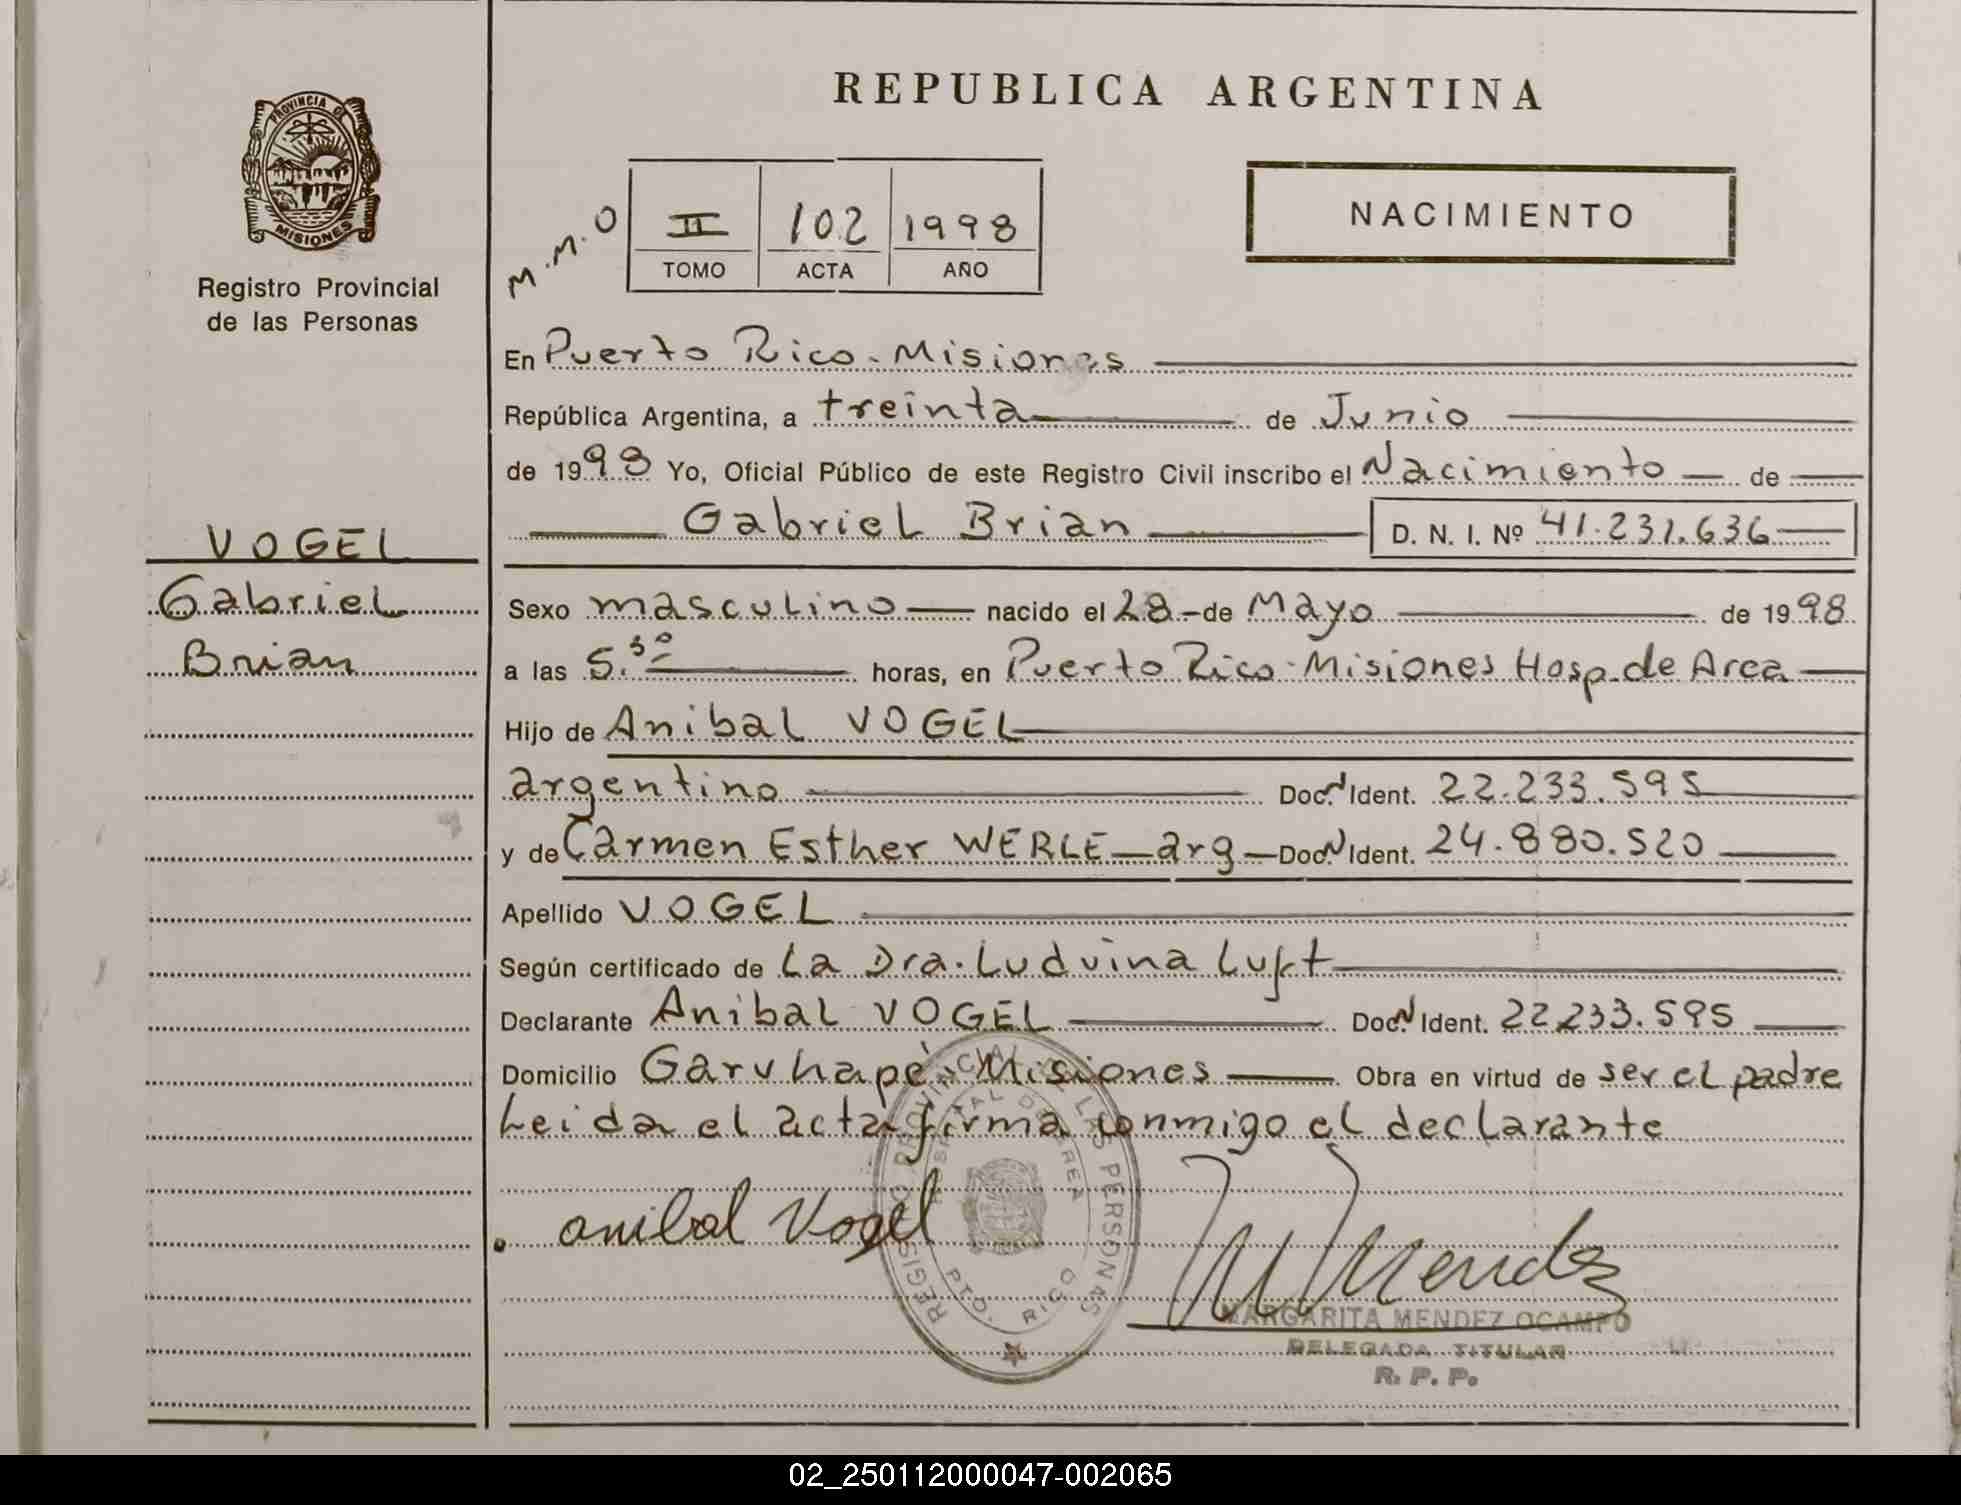 REPUBLICA ARGENTINA
PROVINCIA DE
MISIONES
Registro Provincial
de las Personas
M.M.O
II 102 1998
TOMO ACTA AÑO
NACIMIENTO
En Puerto Rico - Misiones
República Argentina, a treinta de Junio
de 1998 Yo, Oficial Público de este Registro Civil inscribo el Nacimiento de
Gabriel Brian D. N. I. Nº 41.231.636
VOGEL
Gabriel
Brian
Sexo masculino nacido el 28 - de Mayo de 1998
a las 5.30 horas, en Puerto Rico - Misiones Hosp. de Area
Hijo de Anibal VOGEL
argentino Doc. N Ident. 22.233.595
y de Carmen Esther WERLE - arg - Doc. N Ident. 24.880.520
Apellido VOGEL
Según certificado de La Dra. Luduina Luft
Declarante Anibal VOGEL Doc. N Ident. 22.233.595
Domicilio Garuhapé Misiones Obra en virtud de ser el padre
Leida el acta firma conmigo el declarante
anibal Vogel
M Mendez
REGISTRO PROVINCIAL DE LAS PERSONAS
HOSPITAL DE AREA
PTO. RICO
MARGARITA MENDEZ OCAMPO
DELEGADA TITULAR
R. P. P.
02_250112000047-002065